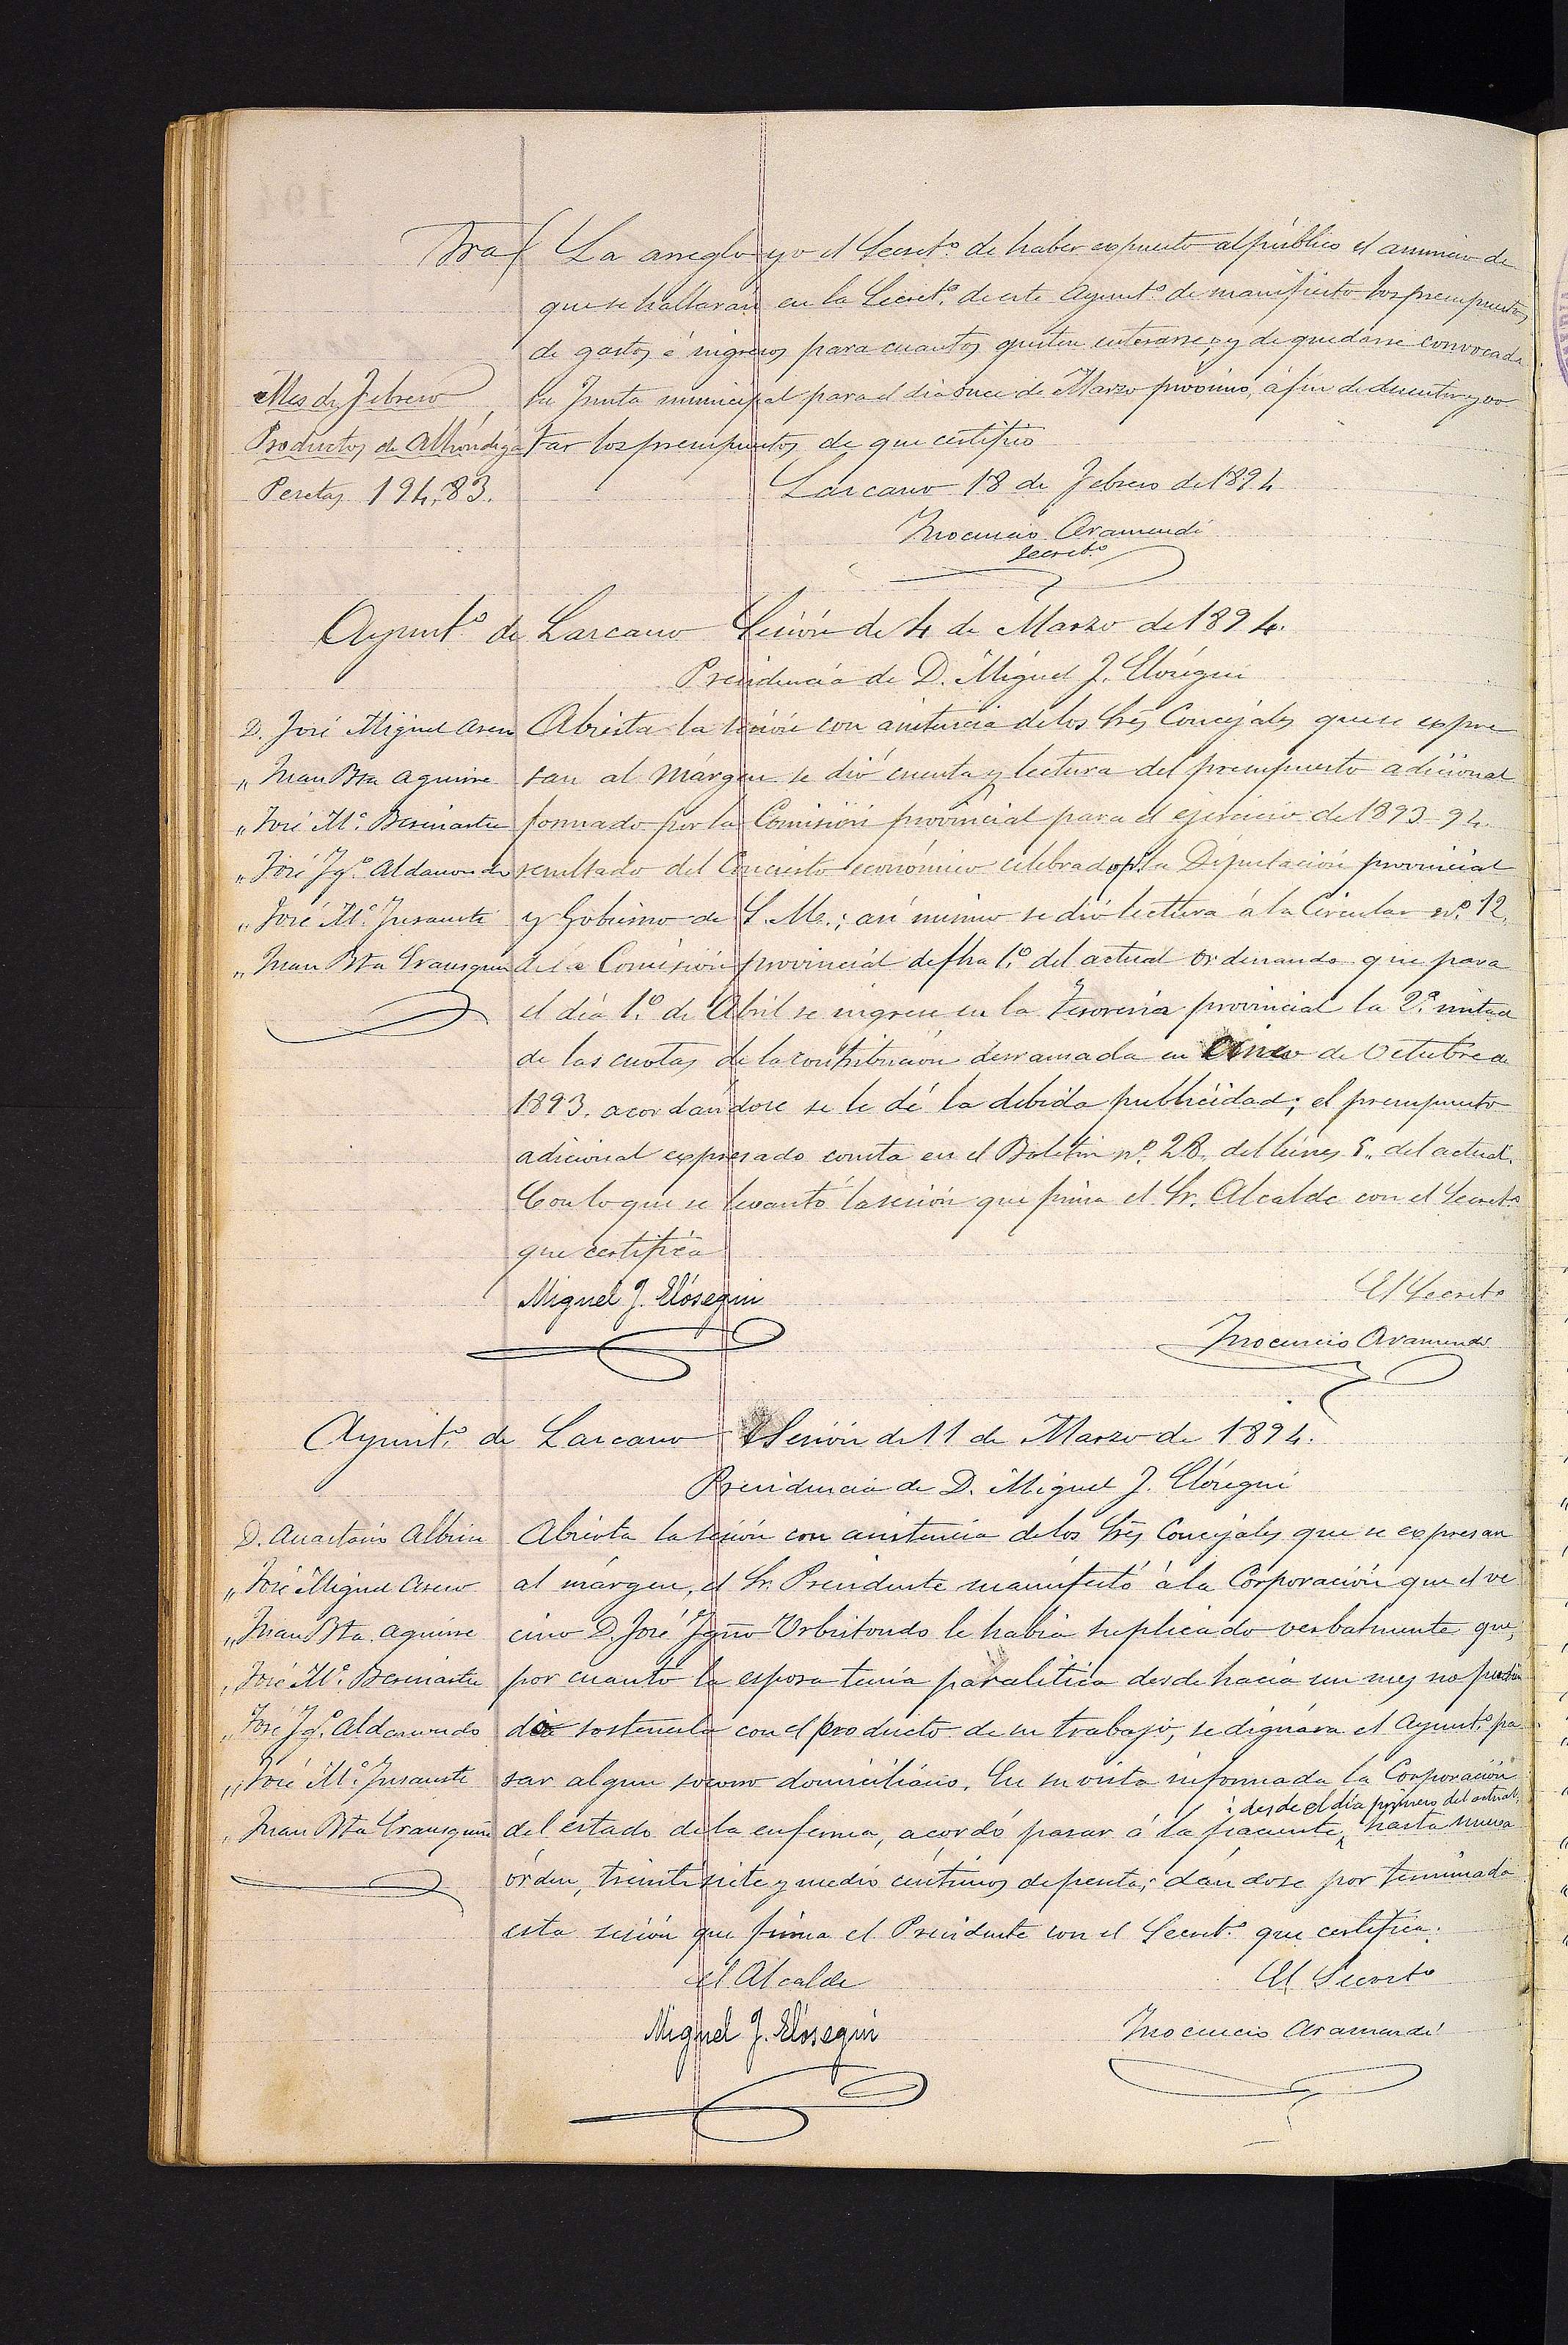 La arreglo yo el Secret.º de haber expuesto al público el anuncio de
que se hallarán en la Secret.ª de este Ayunt.º de manifiesto los presupuestos
de gastos é ingresos para cuantos gusten enterarse; y de quedarse convocada
la Junta municipal para el dia once de Marzo próximo, á fin de discutir y vo
tar los presupuestos de que certifico
Mes de Febrero
Productos de Alhóndiga
Pesetas 194,83.
Lazcano 18 de Febrero de 1894
Inocencio Aramendi
Secret.º
Ayunt.º de Lazcano Sesión de 4 de Marzo de 1894.
Presidencia de D. Miguel J. Elósegui
D. José Miguel Asen
" Juan Bta Aguirre
" José M.ª Berinastu
" José Ig.º Aldasoro
" José M.ª Insausti
" Juan Bta Erausquin
Abierta la sesión con asistencia de los Sres Concejales que se expre
san al márgen se dió cuenta y lectura del presupuesto adicional
formado por la Comisión provincial para el ejercicio de 1893-94.
resultado del Concierto económico celebrado p.r la Diputación provincial
y Gobierno de S. M.; así mismo se dió lectura á la Circular nº. 12.
de la Comisión provincial de fha 1.º del actual ordenando que para
el día 1.º de Abril se ingrese en la Tesorería provincial la 2.ª mitad
de las cuotas de la contribución derramada en cinco de Octubre de
1893. acordándose se le dé la debida publicidad; el presupuesto
adicional expresado consta en el Boletin nº. 28. del lúnes 5. del actual.
Con lo que se levantó la sesión que firma el Sr. Alcalde con el Secret.º
que certifica
Miguel J. Elósegui
El Secret.º
Inocencio Aramendi
Ayunt.º de Lazcano Sesión de 11 de Marzo de 1894.
Presidencia de D. Miguel J. Elósegui
D. Anastasio Albisu
" José Miguel Aseno
" Juan Bta. Aguirre
" José M.ª Berinastu
" José Ig.º Aldasoro
" José M.ª Insausti
" Juan Bta Erausquin
Abierta la sesión con asistencia de los Sres Concejales que se expresan
al márgen, el Sr. Presidente manifestó á la Corporación que el ve
cino D. José Igno Urbistondo le habia suplicado verbalmente que,
por cuanto la esposa tenía paralítica desde hacía un mes no pudien
do sostenerla con el producto de su trabajo, se dignára el Ayunt.º pa
sar algun socorro domiciliário. En su vista informada la Corporación
del estado de la enferma, acordó pasar á la paciente, hasta nueva
i desde el día primero del actual,
órden, treintisiete y medio céntimos de peseta; dándose por terminada
esta sesión que firma el Presidente con el Secret.º que certifica.
El Alcalde
El Secret.º
Miguel J. Elósegui
Inocencio Aramendi